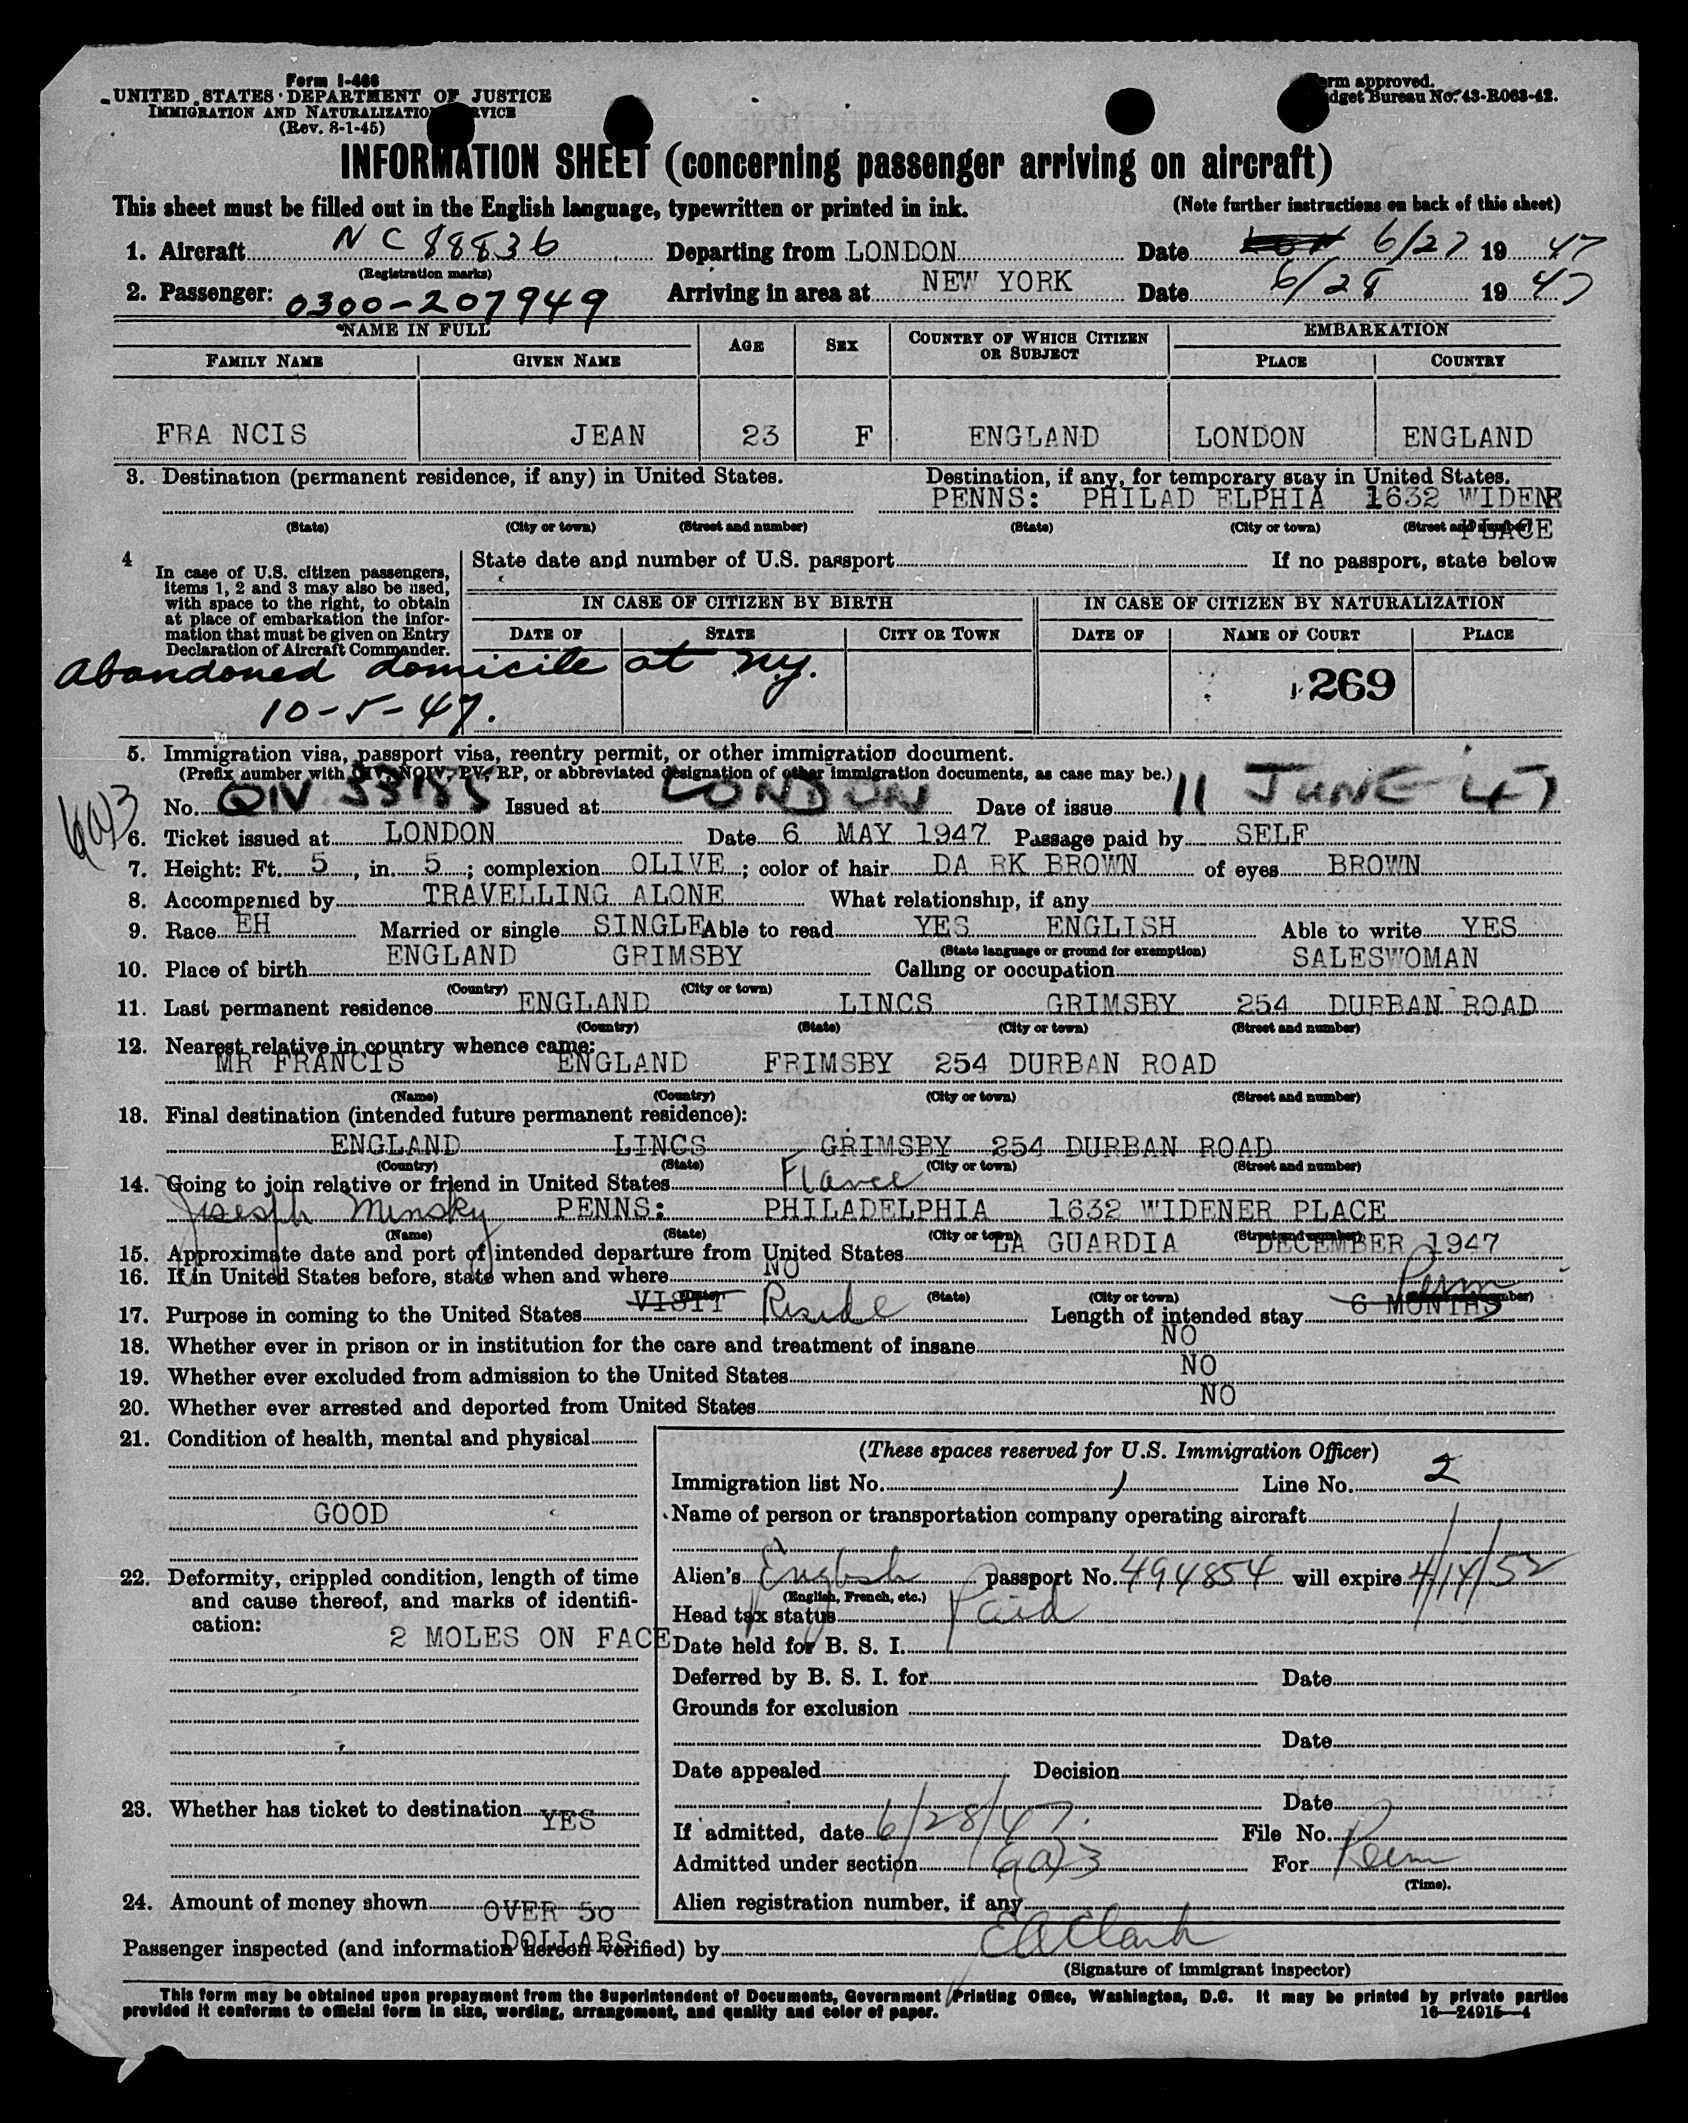 Form I-466
UNITED STATES DEPARTMENT OF JUSTICE
IMMIGRATION AND NATURALIZATION SERVICE
(Rev. 8-1-45)
Form approved.
Budget Bureau No. 43-R063-42.
INFORMATION SHEET (concerning passenger arriving on aircraft)
This sheet must be filled out in the English language, typewritten or printed in ink. (Note further instructions on back of this sheet)
1. Aircraft NC88836 Departing from LONDON Date 6/27 1947
(Registration marks)
2. Passenger: 0300-207949 Arriving in area at NEW YORK Date 6/28 1947
NAME IN FULL AGE SEX COUNTRY OF WHICH CITIZEN OR SUBJECT EMBARKATION
FAMILY NAME GIVEN NAME PLACE COUNTRY
FRA NCIS JEAN 23 F ENGLAND LONDON ENGLAND
3. Destination (permanent residence, if any) in United States. Destination, if any, for temporary stay in United States.
PENNS: PHILAD ELPHIA 1632 WIDENR
PLACE
(State) (City or town) (Street and number) (State) (City or town) (Street and number)
4 In case of U.S. citizen passengers, items 1, 2 and 3 may also be used, with space to the right, to obtain at place of embarkation the information that must be given on Entry Declaration of Aircraft Commander.
State date and number of U.S. passport If no passport, state below
IN CASE OF CITIZEN BY BIRTH IN CASE OF CITIZEN BY NATURALIZATION
DATE OF STATE CITY OR TOWN DATE OF NAME OF COURT PLACE
Abandoned domicile at N.Y.
10-5-47.
269
5. Immigration visa, passport visa, reentry permit, or other immigration document.
(Prefix number with QIV, NQIV, PV, RP, or abbreviated designation of other immigration documents, as case may be.)
No. QIV Issued at LONDON Date of issue 11 JUNE 47
6. Ticket issued at LONDON Date 6 MAY 1947 Passage paid by SELF
7. Height: Ft. 5, in. 5; complexion OLIVE; color of hair DA RK BROWN of eyes BROWN
8. Accompanied by TRAVELLING ALONE What relationship, if any
9. Race EH Married or single SINGLE Able to read YES ENGLISH Able to write YES
(State language or ground for exemption)
10. Place of birth ENGLAND GRIMSBY Calling or occupation SALESWOMAN
(Country) (City or town)
11. Last permanent residence ENGLAND LINCS GRIMSBY 254 DURBAN ROAD
(Country) (State) (City or town) (Street and number)
12. Nearest relative in country whence came:
MR FRANCIS ENGLAND FRIMSBY 254 DURBAN ROAD
(Name) (Country) (City or town) (Street and number)
13. Final destination (intended future permanent residence):
ENGLAND LINCS GRIMSBY 254 DURBAN ROAD
(Country) (State) (City or town) (Street and number)
14. Going to join relative or friend in United States
Joseph Minsky PENNS: PHILADELPHIA 1632 WIDENER PLACE
(Name) (State) (City or town) (Street and number)
15. Approximate date and port of intended departure from United States LA GUARDIA DECEMBER 1947
16. If in United States before, state when and where NO
(Date) (State) (City or town) (Street and number)
17. Purpose in coming to the United States VISIT Reside Length of intended stay 6 MONTHS Perm
18. Whether ever in prison or in institution for the care and treatment of insane NO
19. Whether ever excluded from admission to the United States NO
20. Whether ever arrested and deported from United States NO
21. Condition of health, mental and physical
GOOD
22. Deformity, crippled condition, length of time and cause thereof, and marks of identification:
2 MOLES ON FACE
23. Whether has ticket to destination YES
24. Amount of money shown OVER 50 DOLLARS
(These spaces reserved for U.S. Immigration Officer)
Immigration list No. 1 Line No. 2
Name of person or transportation company operating aircraft
Alien's English passport No. 494854 will expire 4/14/52
(English, French, etc.)
Head tax status Paid
Date held for B. S. I.
Deferred by B. S. I. for Date
Grounds for exclusion
Date
Date appealed Decision
Date
If admitted, date 6/28/47. File No.
Admitted under section 6(a)3 For Perm
(Time).
Alien registration number, if any
Passenger inspected (and information hereon verified) by E A Clark
(Signature of immigrant inspector)
This form may be obtained upon prepayment from the Superintendent of Documents, Government Printing Office, Washington, D.C. It may be printed by private parties
provided it conforms to official form in size, wording, arrangement, and quality and color of paper. 16—24915-4